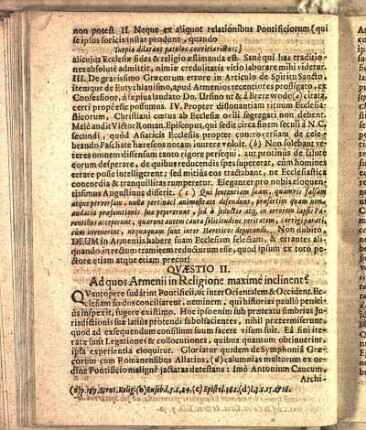 non potest II. Neque ex aliquot relationibus Pontificiorum (qui
se ipsos soricis instar produnt, quando
Turpia dilatant patulos convitia rictus;)
alicujus Ecclesiæ fides & religio æstimanda est. Sanè qui has traditio-
nes absolutè admittit, nimiæ credulitatis vitio laborare mihi videtur.
III. De gravissimo Græcorum errore in Articulo de Spiritu Sancto,
itemque de Eutychianismo, apud Armenios recentiores profligato, ex
Confessione, à sæpius laudato Dn. Ursino ut & à Brerewodo (a) citata,
certi prope esse possumus. IV. Propter dissonantiam rituum Ecclesia-
sticorum, Christiani cœtus ab Ecclesiæ ovili segregari non debent.
Malè audit Victor Roman. Episcopus, qui sedit circa finem seculi à N.C.
secundi, quod Asiaticis Ecclesiis propter controversiam de cele-
brando Paschate hæreseos notam inurere voluit. (b) Non solebant ve-
teres omnem dissensum tanto rigore persequi, aut protinus de salute
eorum desperare, de quibus reducendis spes supererat, cum homines
errare posse intelligerent; sed mitiàs eos tractabant, ne Ecclesiastica
concordia & tranquillitas rumperetur. Eleganter pro nobis eloquen-
tissimus Augustinus disserit. (c) Qui sententiam suam, quamvis falsam
atque perversam, nulla pertinaci animositate defendunt, præsertim quam non
audacia præsumtionis suæ pepererunt, sed à seductis atq; in errorem lapsis Pa-
rentibus acceperunt, quærunt autem cauta solicitudine veritatem, corrigi parati,
cum invenerint, nequaquam sunt inter Hæreticos deputandi. Non dubito
DEUM in Armeniis habere suam Ecclesiam selectam, & errantes ali-
quando in rectum tramitem reducturum esse, quod ipsum ex toto pe-
ctore etiam atque etiam precor.
QVÆSTIO II.
Ad quos Armenii in Religione maximè inclinent?
QVantopere sudârint Pontificii, ut inter Orientalem & Occident. Ec-
clesiam fœdus conciliarent, neminem, qui historias paulò peniti-
us inspexit, fugere existimo. Hoc ipsorum sub prætextu fimbrias Ju-
risdictionis suæ latius protendi subolfacientes, nihil prætermiserunt,
quod ad exsequendum consilium suum facere visum fuit. Eâ fini ite-
ratæ sunt Legationes & collocutiones, quibus quantum obtinuerint,
ipsa experientia eloquitur. Gloriatur quidem de Symphonià Græ-
corum cum Romanensibus Allatius, (d) calumnias multorum ex or-
dine Pontificio malignè jactatas detestans: imò Antonium Caucum,
Archi-